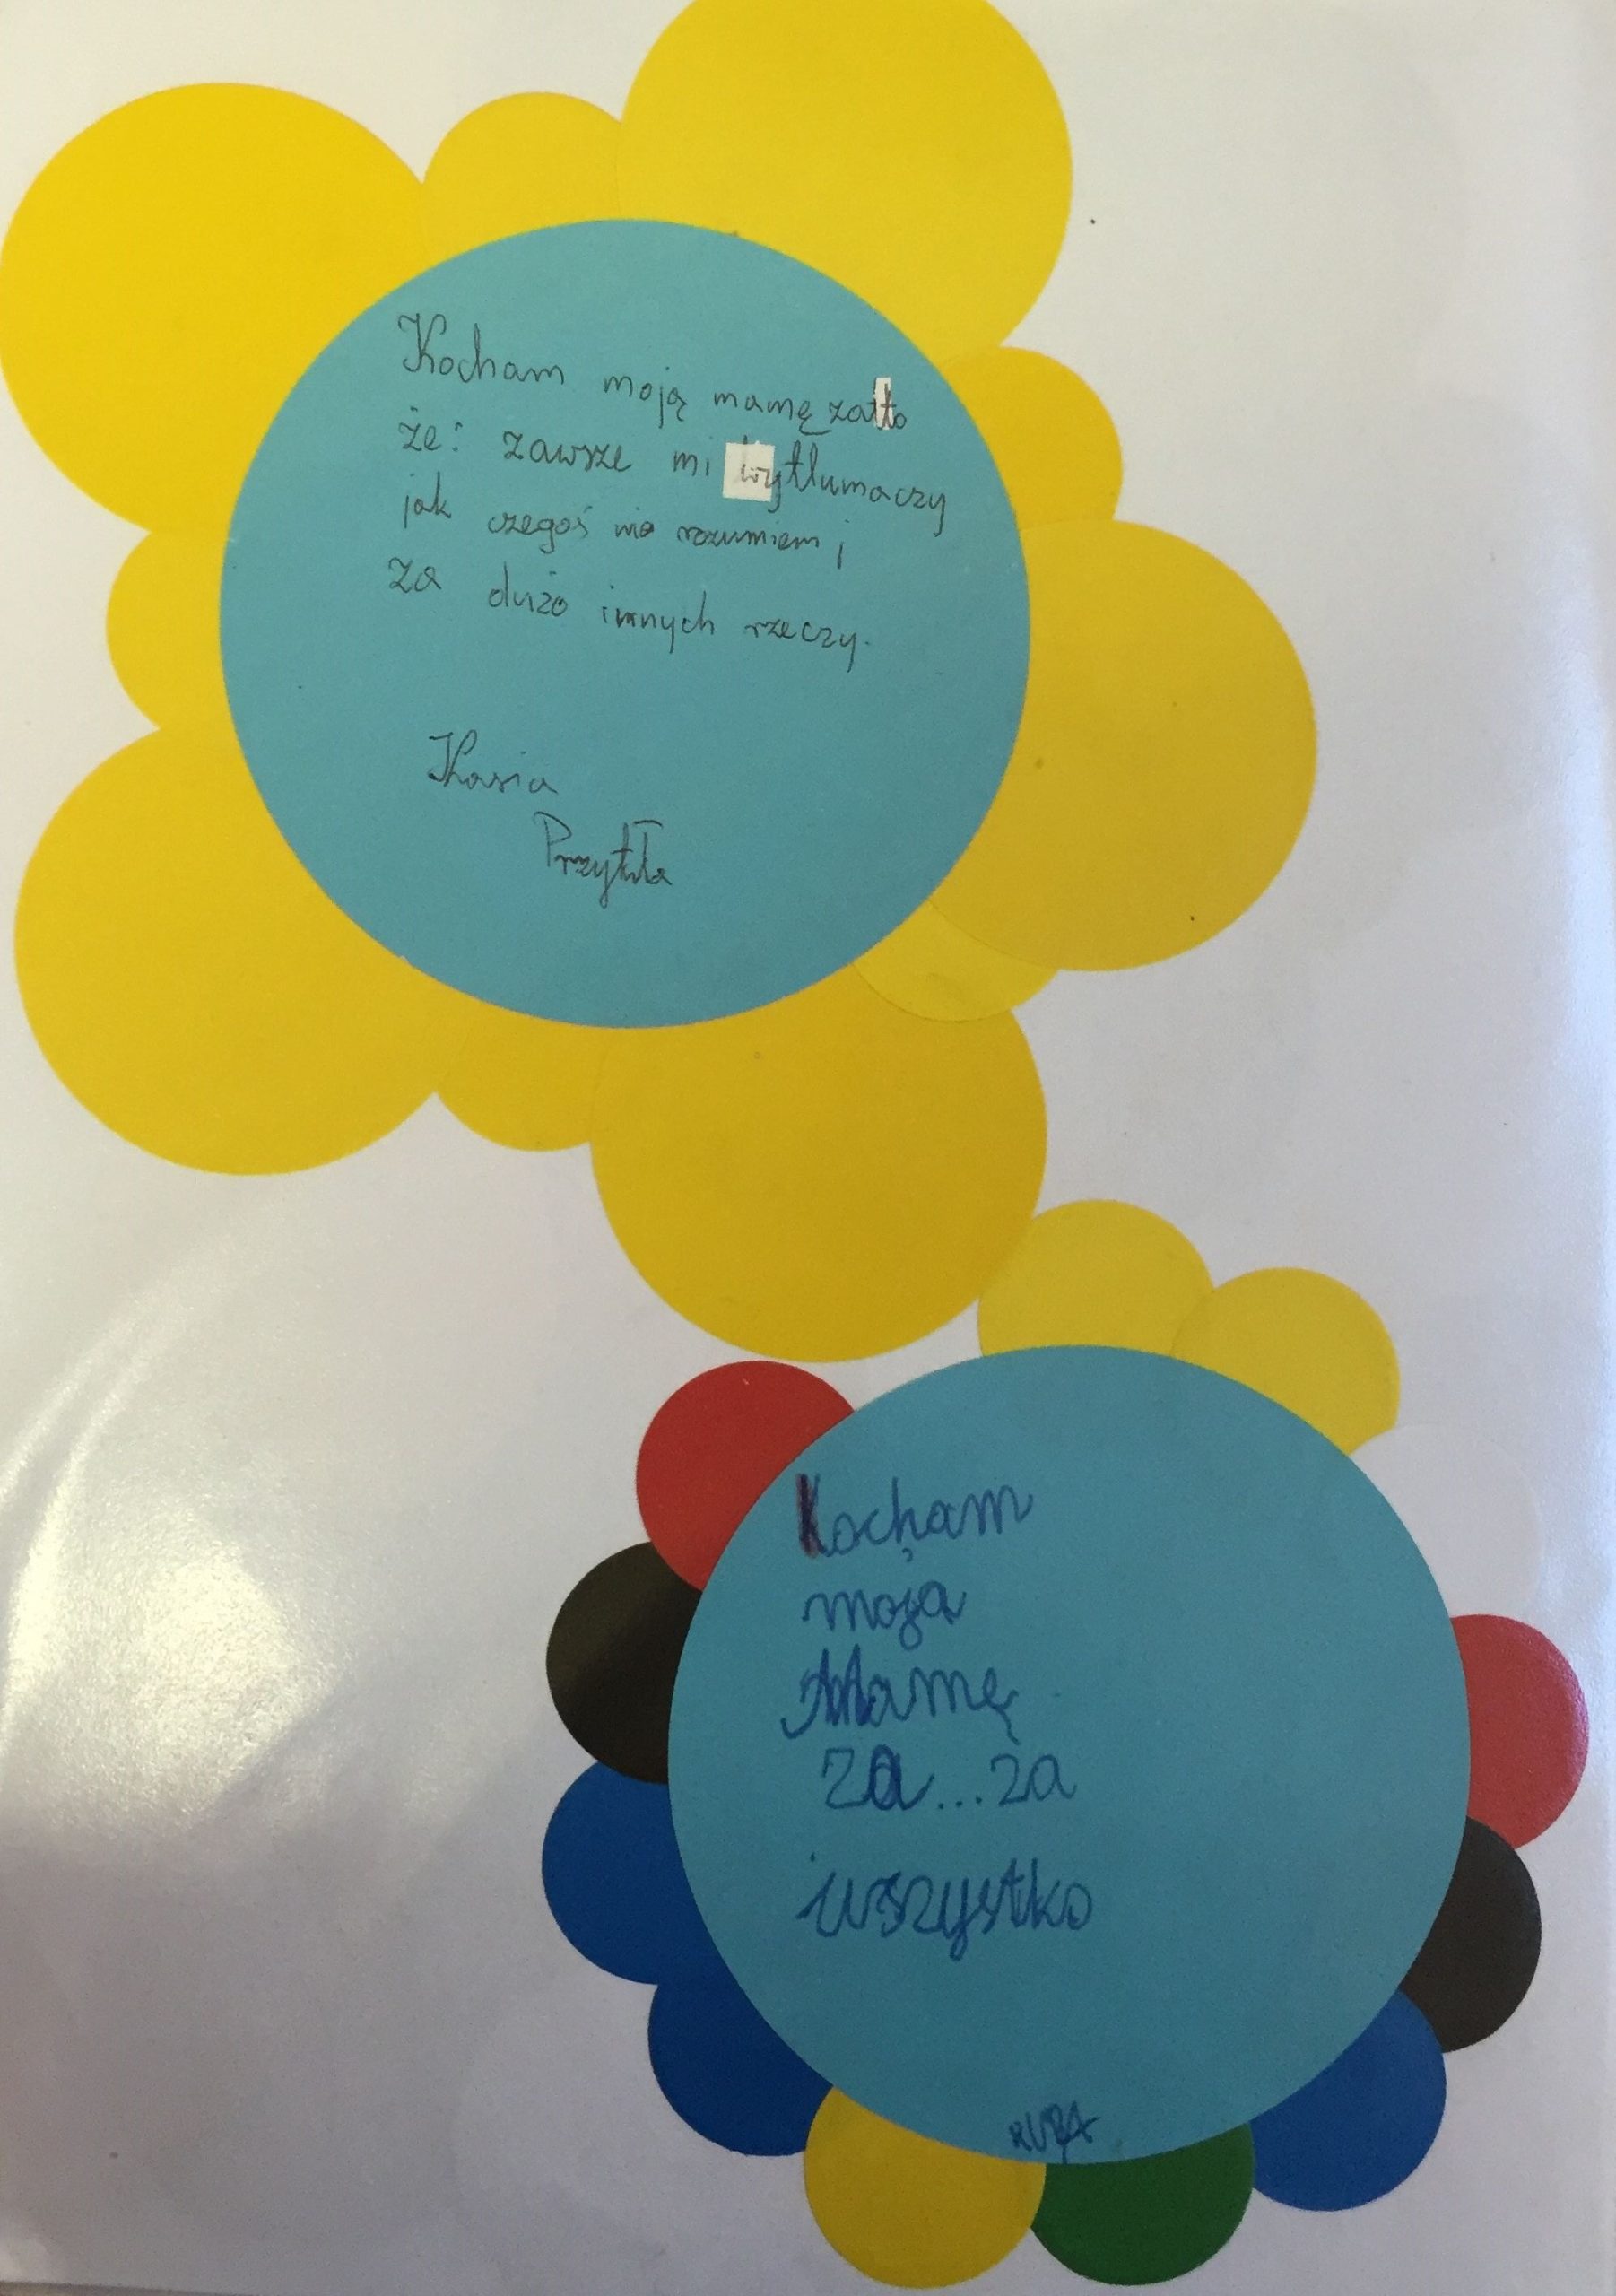 Kocham moją mamę za to
że: zawsze mi wytłumaczy
jak czegoś nie rozumiem i
za dużo innych rzeczy.
Kasia
Kocham
moją
Mamę
za...za
wszystko